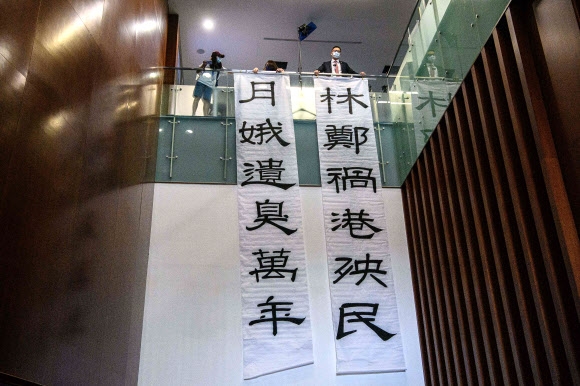 林鄭禍港殃民
月娥遺臭萬年